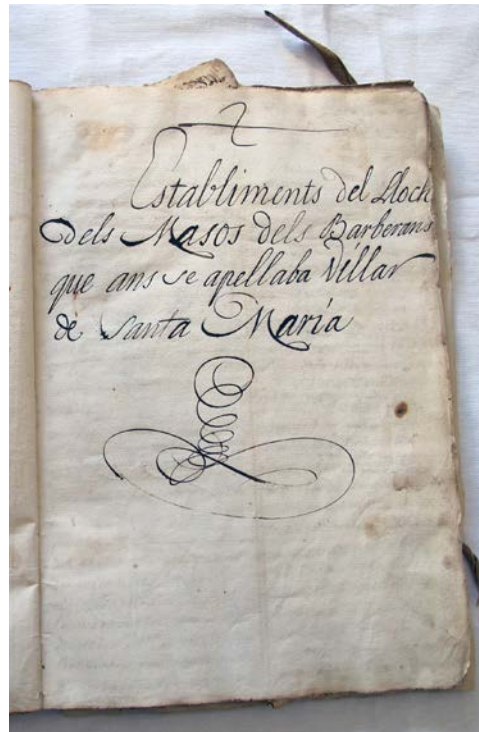 Establiments del Lloch
dels Masos dels Barberans
que ans se apellaba Villar
de Santa María